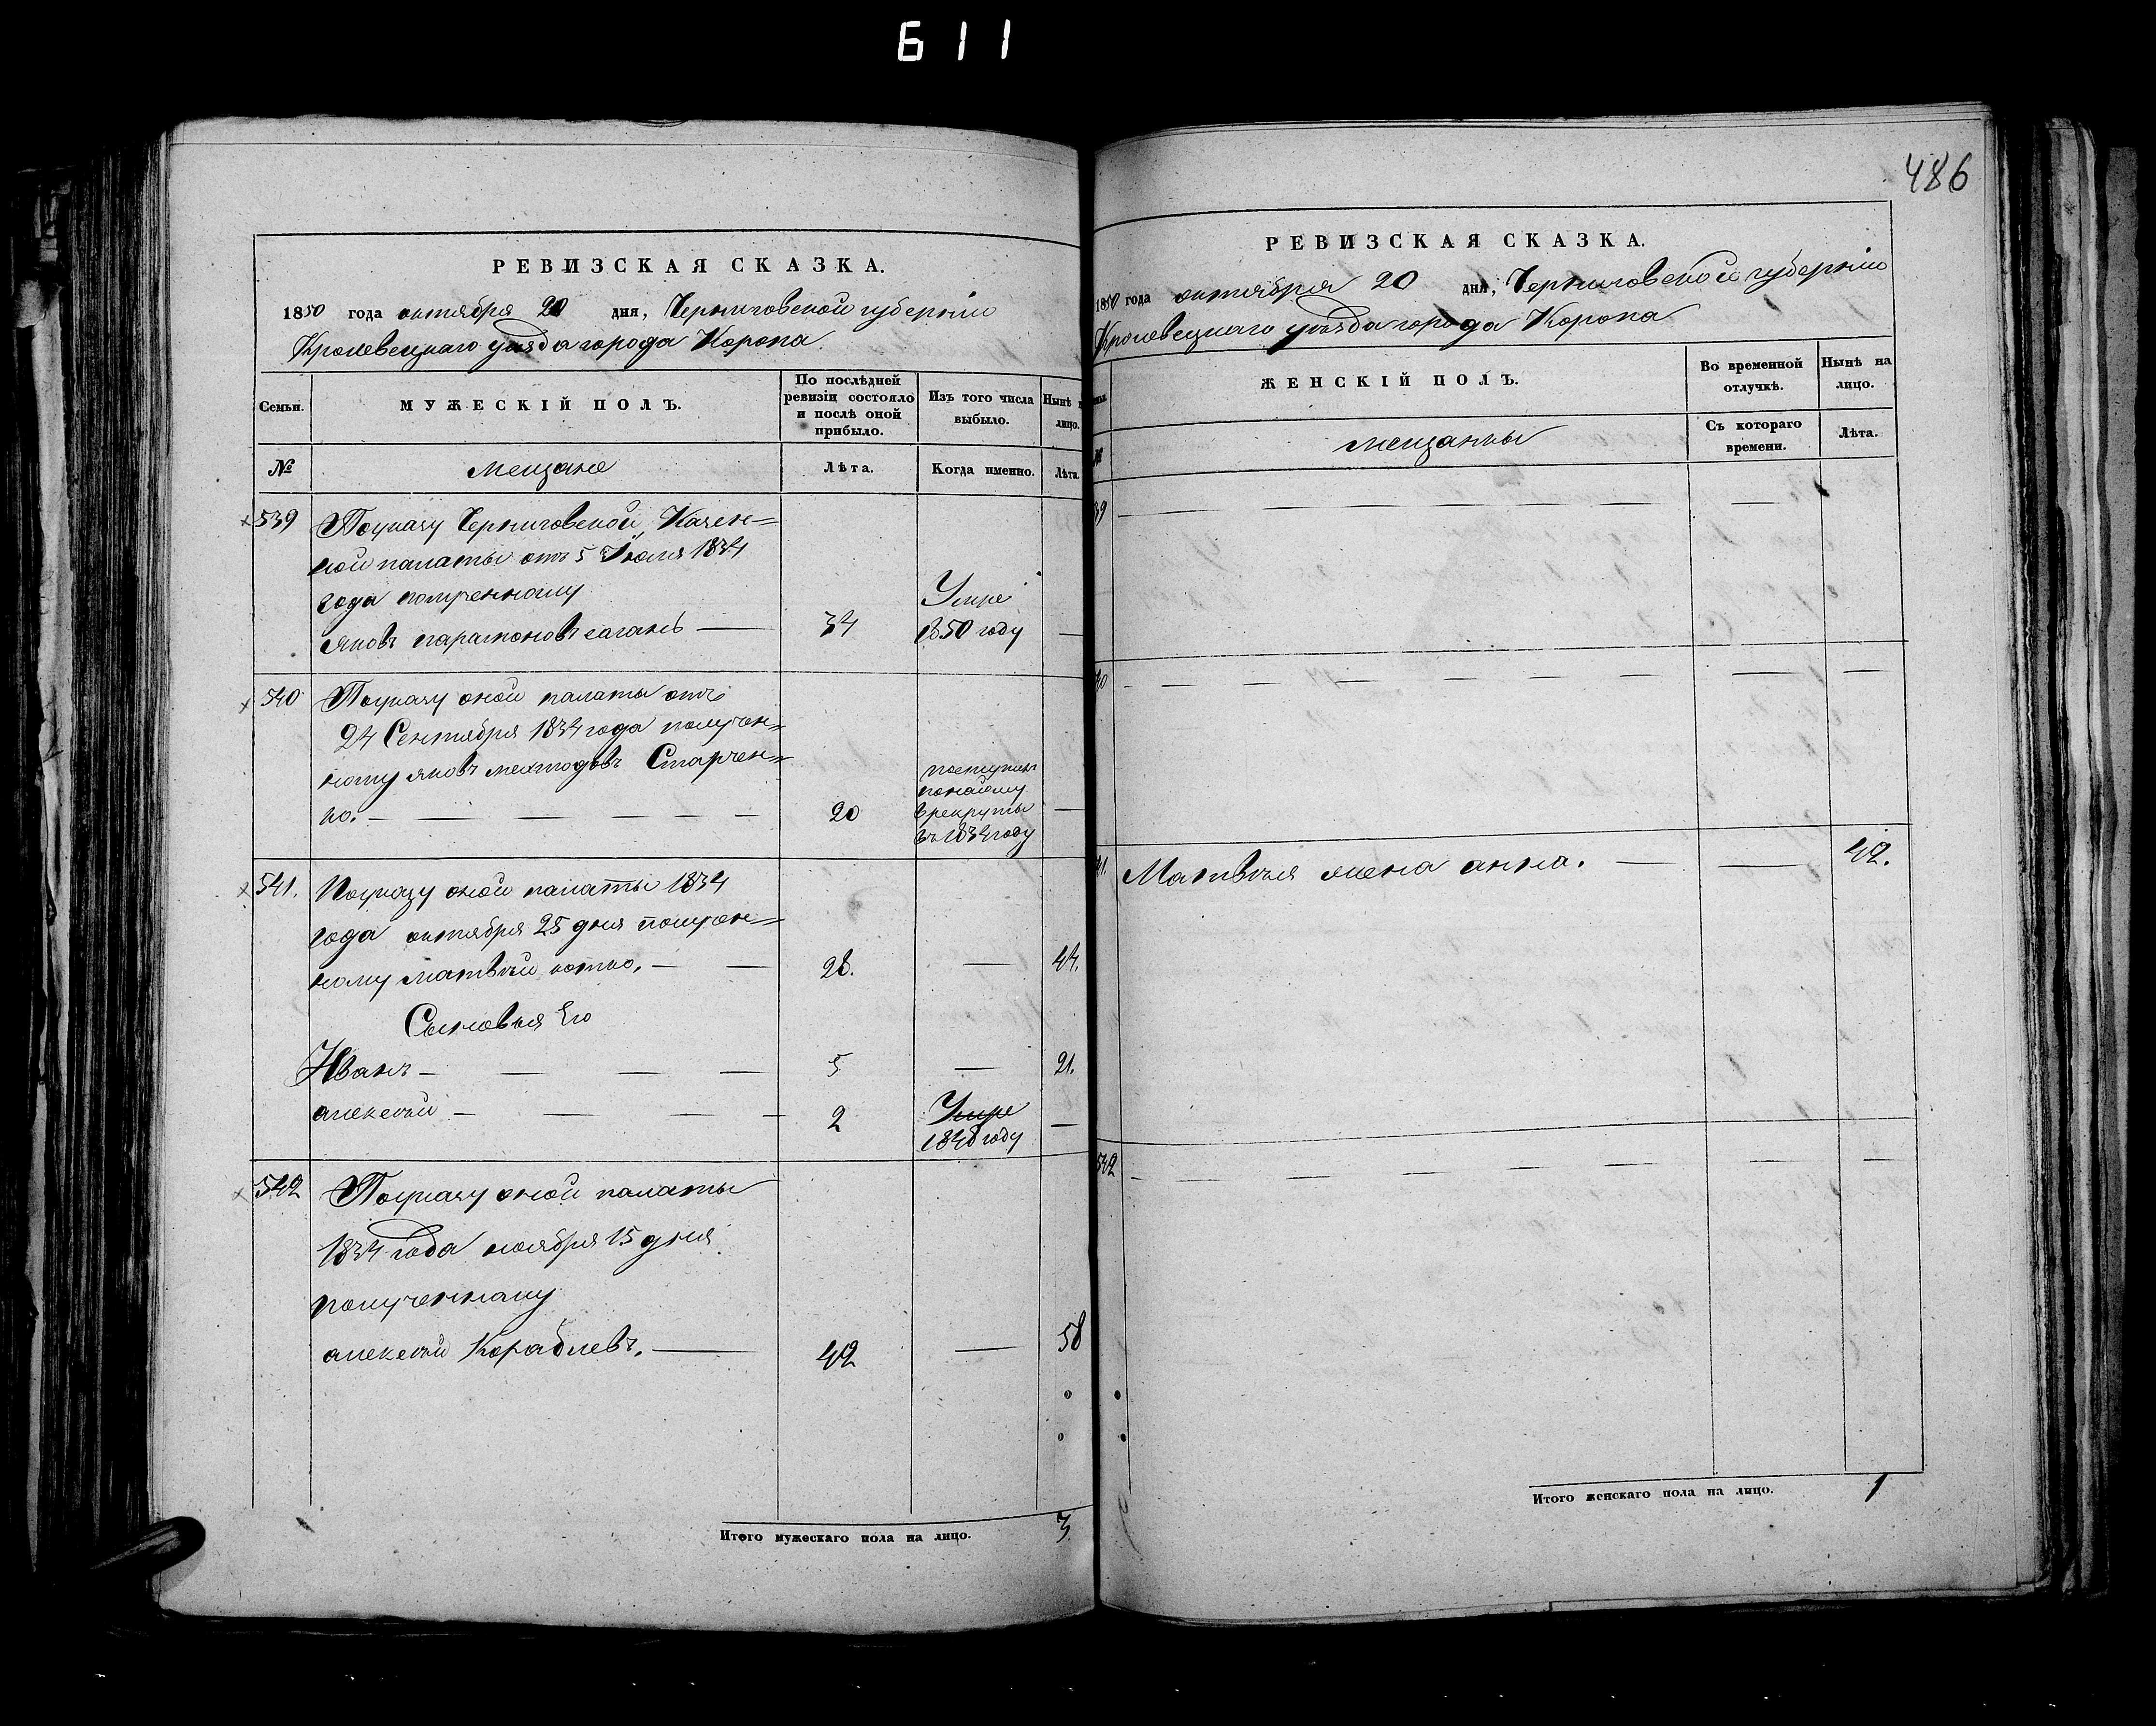 Б 1 1
РЕВИЗСКАЯ СКАЗКА.
1850 года октября 20 дня, Черниговской губерніи
Кролевецкаго уѣзда города Коропа
Семьи.
МУЖЕСКІЙ ПОЛЪ.
По послѣдней ревизіи состояло и послѣ оной прибыло.
Изъ того числа выбыло.
Нынѣ лицо.
№
мещане
Лѣта.
Когда именно.
Лѣта.
539 Поуказу Черниговской Казен=
ной палаты отъ 5 Іюля 1834
года полученному
Яковъ парамоновъ саганъ — 34 Умре 1850 году —
540 Поуказу оной палаты отъ
24 Сентября 1834 года получен=
ному яковъ мехтодовъ Старчен=
ко. — — — — — — 20 поступилъ
в рекруты
въ 1834 году —
541. Поуказу оной палаты 1834
года октября 25 дня получен=
ному матвѣй котко. — — 28. — 44.
Сыновья Его
Иванъ — — — — 5 — 21.
алексѣй — — — — 2 Умре 1848 году —
542 Поуказу оной палаты
1834 года ноября 15 дня
полученному
алексѣй Кораблевъ. — 42 — 58
Итого мужескаго пола на лицо. 3
486
РЕВИЗСКАЯ СКАЗКА.
1850 года октября 20 дня, Черниговской губерніи
Кролевецкаго уѣзда города Коропа
ЖЕНСКІЙ ПОЛЪ.
Во временной отлучкѣ.
Нынѣ на лицо.
№
мещанки
Съ котораго времени.
Лѣта.
39 — — — — — — — —
40 — — — — — — — — — —
41. Матвѣя жена анна. — — 42.
542 — — — — — — — —
Итого женскаго пола на лицо. 1